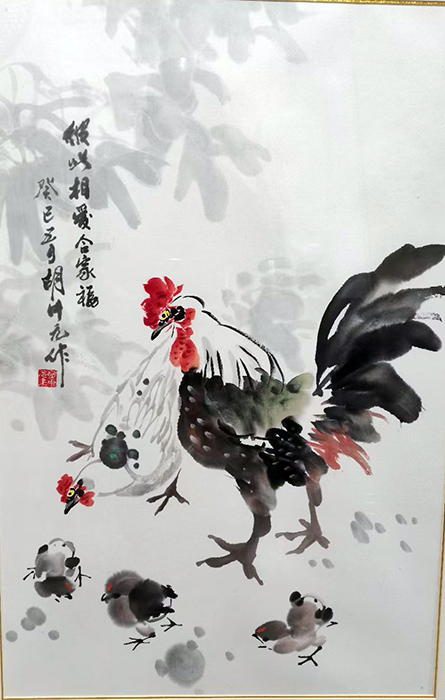 彼此相愛合家福
癸巳五月胡元作